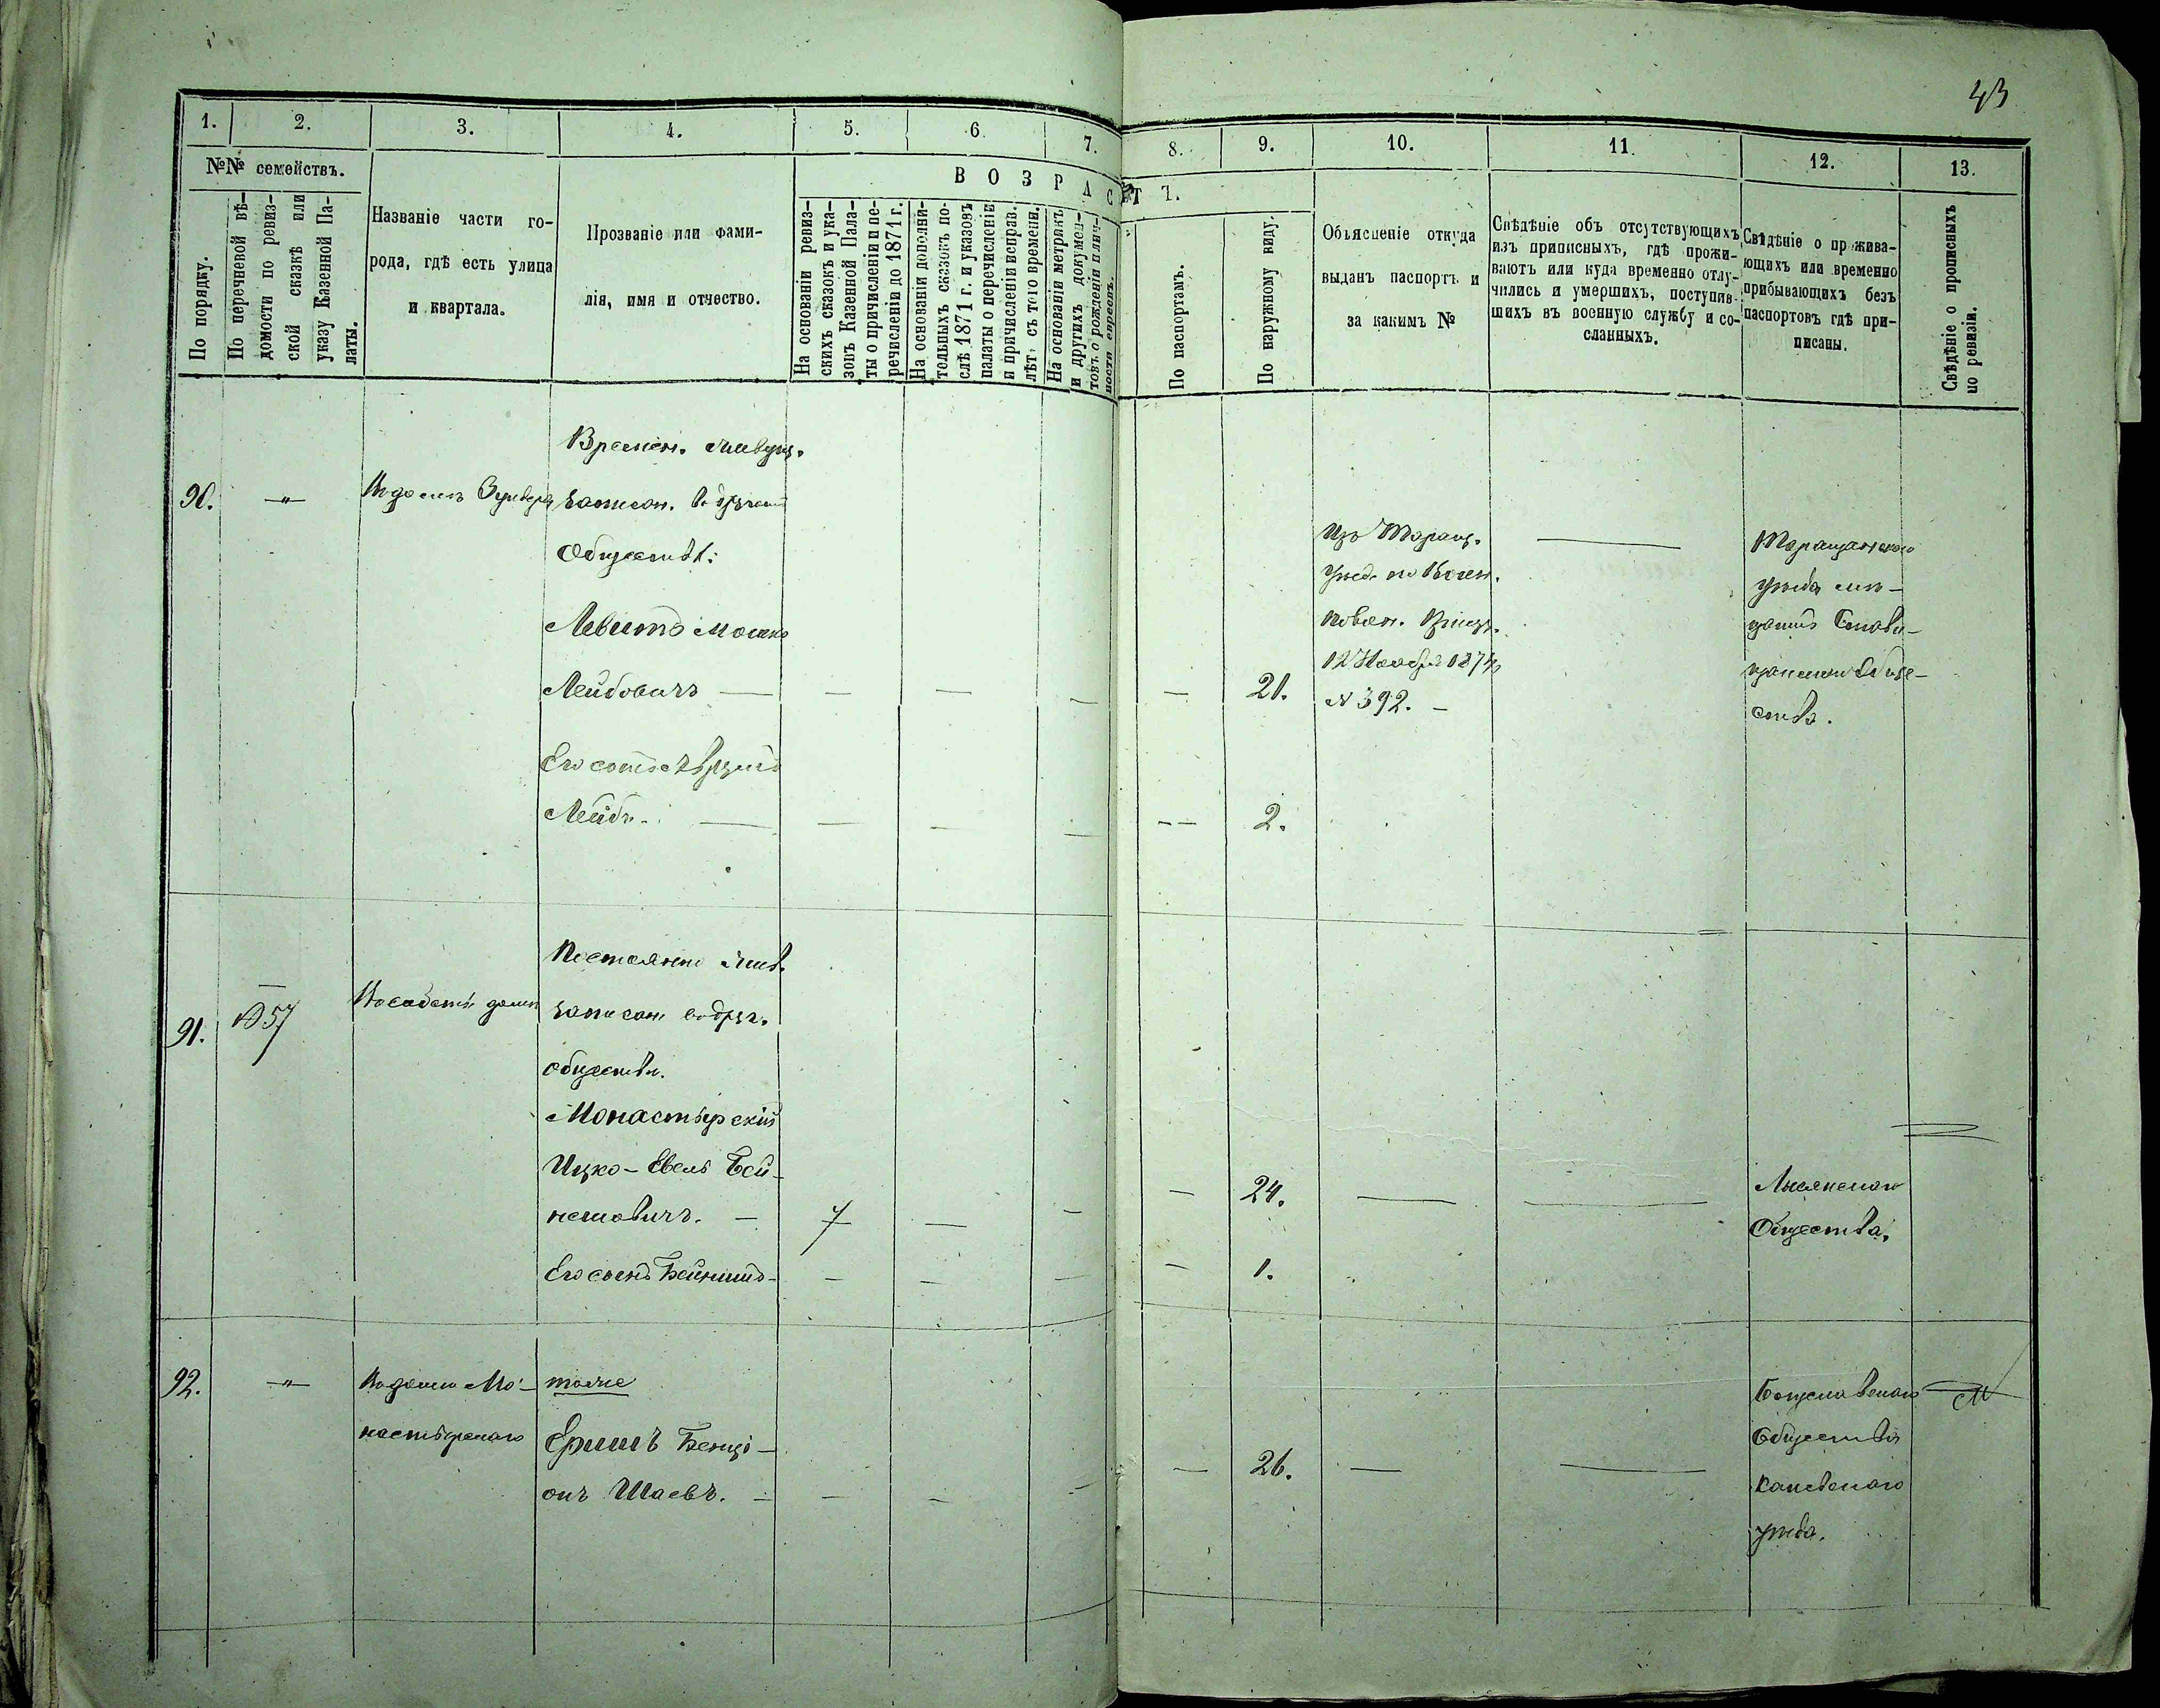 43
1. 2. 3. 4. 5. 6. 7. 8. 9. 10. 11. 12. 13.
№№ семействъ.
По порядку.
По перечневой вѣ-
домости по ревиз-
ской сказкѣ или
указу Казенной Па-
латы.
Названіе части го-
рода, гдѣ есть улица
и квартала.
Прозваніе или фами-
лія, имя и отчество.
ВОЗРАСТЪ.
На основаніи ревиз-
скихъ сказокъ и ука-
зовъ Казенной Пала-
ты о причисленіи и пе-
речисленіи до 1871 г.
На основаніи дополни-
тельныхъ сказокъ по-
слѣ 1871 г. и указовъ
палаты о перечисленіи
и причисленіи исправ.
лѣт. съ того времени.
На основаніи метрикъ
и другихъ докумен-
товъ о рожденіи личн-
ности евреевъ.
По паспортамъ.
По наружному виду.
Объясненіе откуда
выданъ паспортъ и
за какимъ №
Свѣдѣніе объ отсутствующихъ
изъ приписныхъ, гдѣ прожи-
ваютъ или куда временно отлу-
чились и умершихъ, поступив-
шихъ въ военную службу и со-
сланныхъ.
Свѣдѣніе о прожива-
ющихъ или временно
прибывающихъ безъ
паспортовъ гдѣ при-
писаны.
Свѣдѣніе о прописныхъ
по ревизіи.
Времен. живущ.
90. —"—
записан. въ другомъ
Обществѣ:
Левитъ Мошко
Лейбовичъ — — — — — 21.
Изъ Таращ.
Уѣзд. по Воен.
Повин. Присут.
12 Ноября 1874
№ 392. —
Таращанскаго
уѣзда
Стави-
щанскаго Обще-
ства.
Его
Лейбъ — — — — -- 2.
91. 57
Въ собствен. домѣ
Постоянно жив.
записан. въ друг.
обществѣ.
Монастырскій
Ицко-Евель Бей-
нешовичъ. — 7 — — — 24. — —
Лысянскаго
Общества.
Его сынъ Бейнишъ — — — — — 1.
92. —"—
Въ домѣ Мо-
настырскаго
тоже
Ершъ Бенці-
онъ Шаевъ. — — — — — 26. — —
Богуславскаго
Общества
Каневскаго
уѣзда.